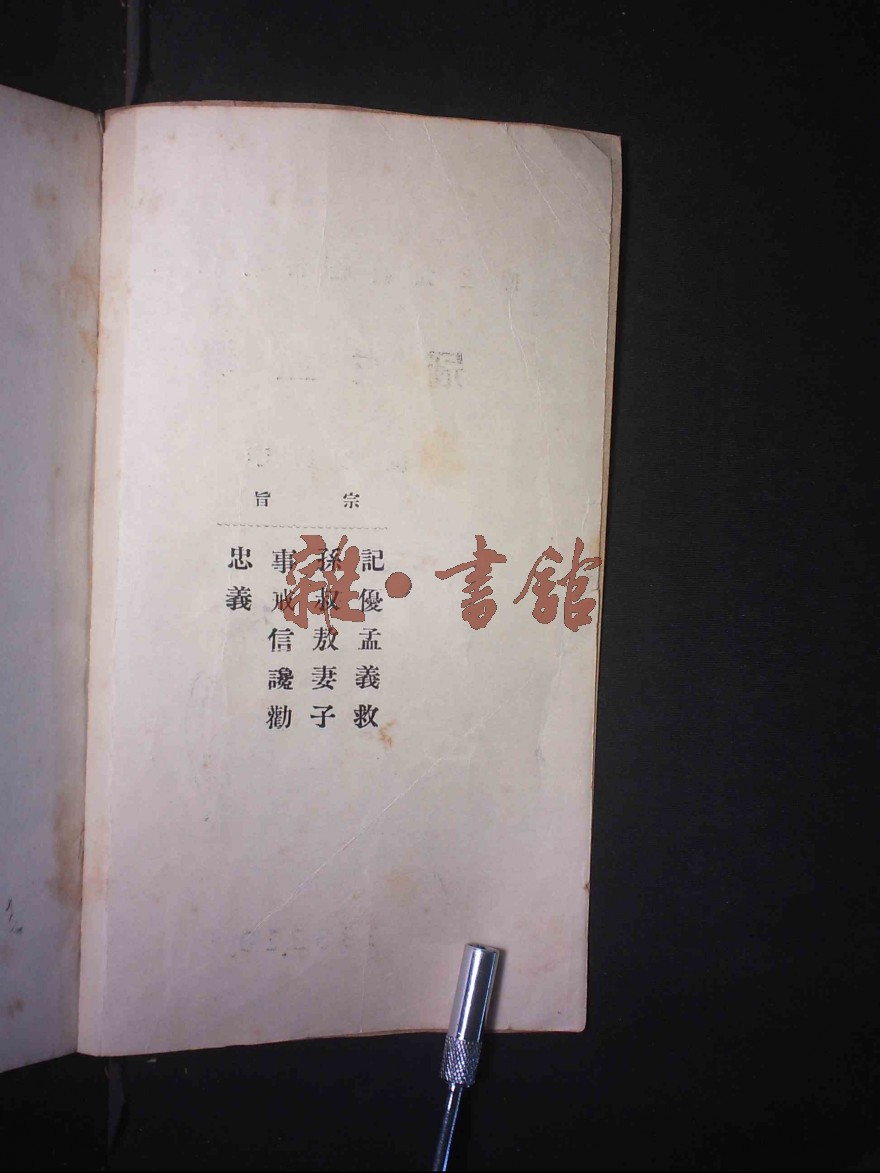 宗旨
記優孟義救
孫叔敖妻子
事戒信讒勸
忠義
雜·書館